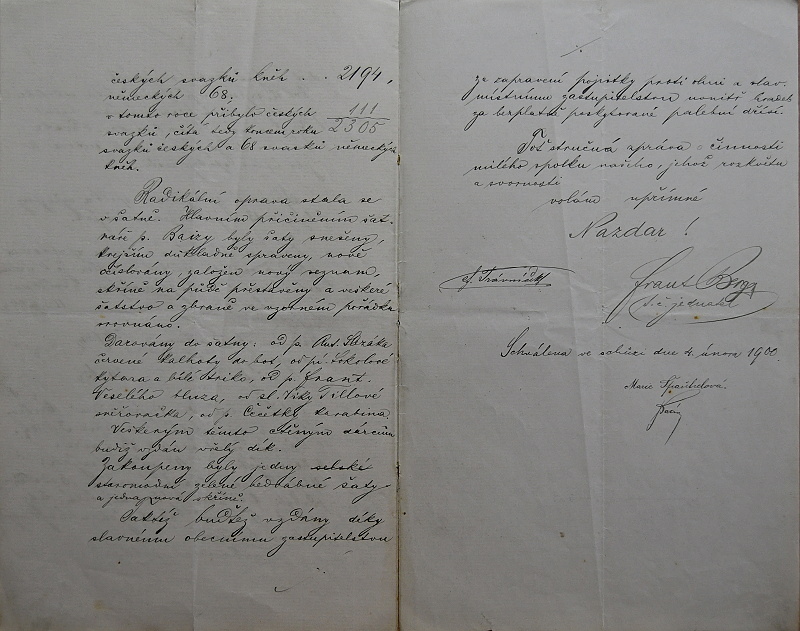 českých svazků kněh . . 2194,
německých 68.
v tomto roce přibylo českých 111
svazků, čítá tedy koncem roku 2305
svazků českých a 68 svazků německých
kněh.
Radikální oprava stala se
v šatně. Hlavním přičiněním šat-
náře p. Baizy byly šaty snešeny,
krejčím důkladně spraveny, nově
číslovány, založen nový seznam,
skříně na půdě přestavěny a veškeré
šatstvo a zbraně ve vzorném pořádku
srovnáno.
Darovány do šatny: od p. Ant.
červené kalhoty do bot, od pí. Sokolové
kytara a bílé trika, od p. Frant.
Veselého bluza, od sl. Tillové
od p. Čečetky karabina.
Veškerým těmto ctěným dárcům
budiž vzdán vřelý dík.
Zakoupeny byly jedny selské
staromodní zelené hedvábné šaty
a jedna nová skříně.
Taktéž buďtež vzdány díky
slavnému obecnímu zastupitelstvu
za zapravení pojistky proti ohni a slav.
místnímu zastupitelstvu
za bezplatné poskytované palební dříví.
Toť stručná zpráva o činnosti
milého spolku našeho, jehož rozkvětu
a svornosti
volám upřímné
Nazdar!
Frant
t. č. jednatel
Schválena ve schůzi dne 4. února 1900.
Marie